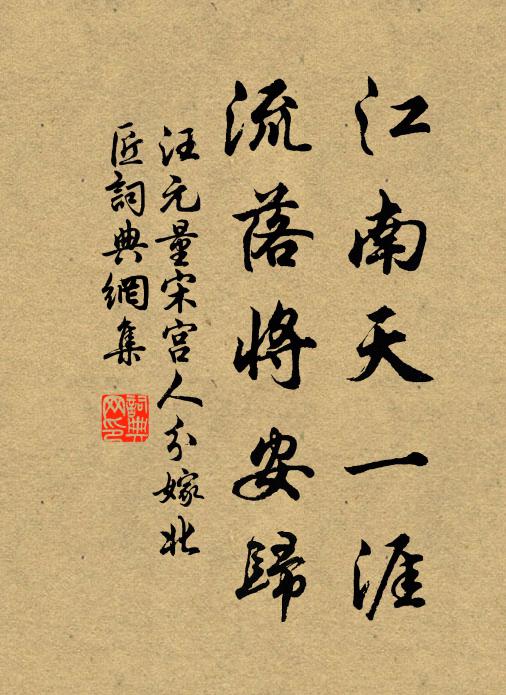 江南天一涯
流落將安歸
汪元量宋宫人分嫁北
匠詞典網集
詞典
网印